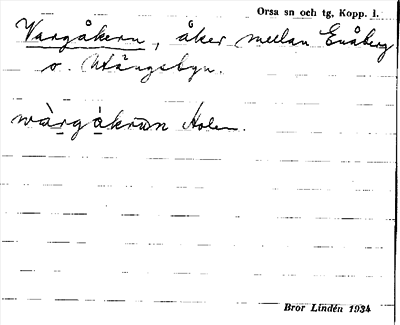 Orsa sn och tg, Kopp. l.
Vargåkern, åker mellan Enåberg
o. Utängsbyn.
wàrgåkrun Holen.
Bror Lindén 1934